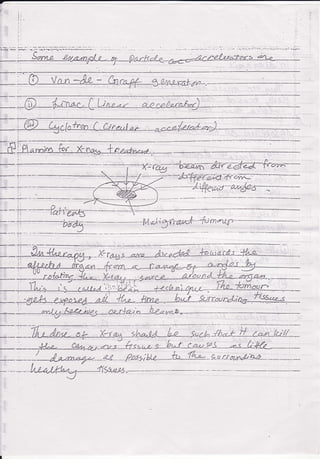 Some example of Particle accelerators are
(i) Van-de-Graaff generator.
(ii) Linac (Linear accelerator)
(iii) Cyclotron (Circular accelerator)
Planning for X-ray treatment
X-ray beam directed from
different from
different angles
Patients
body
Malignant tumour
In therapy, X-rays are directed towards the
affected organ from a range of angles by
rotating the X-ray source around the organ.
This is called technique. The tumour
gets exposed all the time but surrounding tissues
only receives certain beams.
The dose of X-ray should be such that it can kill
the cancerous tissues but causes as little
damage as possible to the surrounding
healthy tissues.